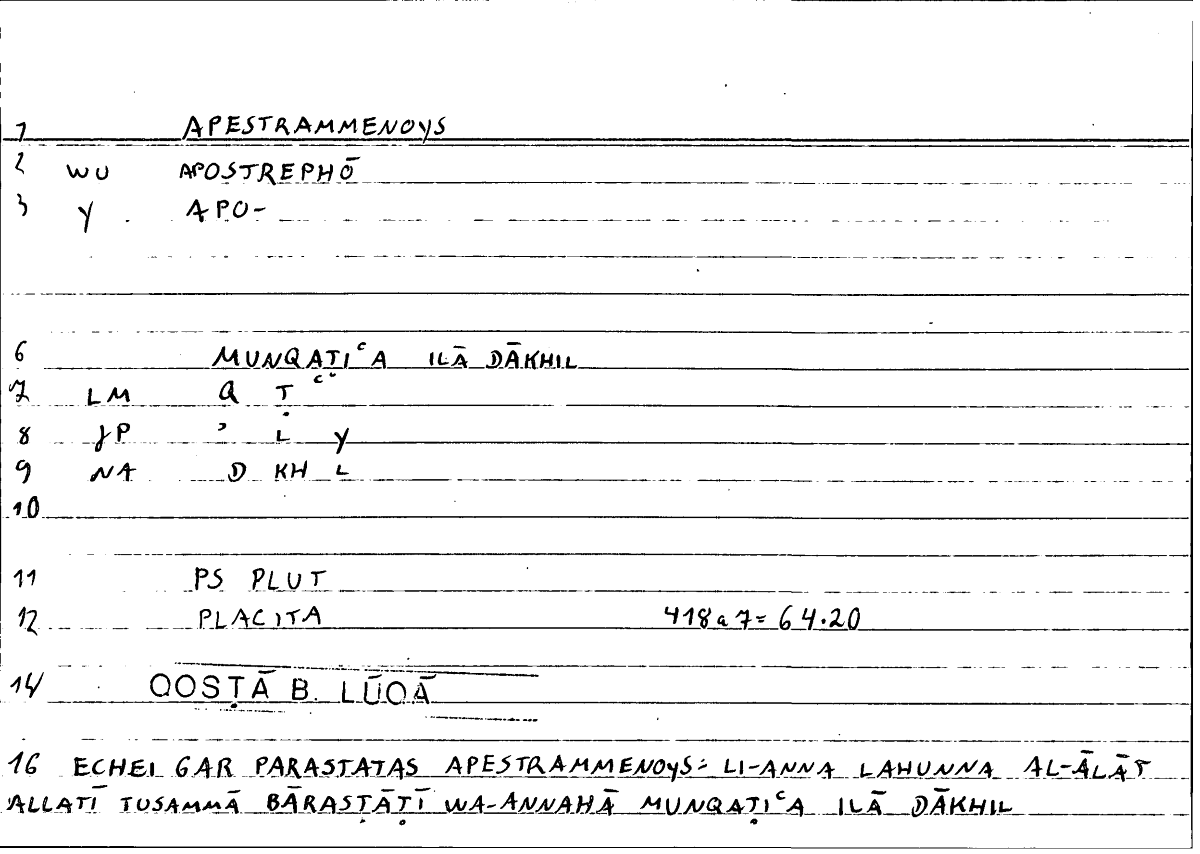 1 APESTRAMMENOYS
2 WU APOSTREPHŌ
3 Y APO-
6 MUNQAṬIᶜA ILĀ DĀKHIL
7 LM Q Ṭ ᶜ
8 JP ʾ L Y
9 NA D KH L
10
11 PS PLUT
12 PLACITA 418a7=64.20
14 QOSṬĀ B. LŪQĀ
16 ECHEI GAR PARASTATAS APESTRAMMENOYS: LI-ANNA LAHUNNA AL-ĀLĀT
ALLATĪ TUSAMMĀ BĀRASṬĀṬĪ WA-ANNAHĀ MUNQAṬIᶜA ILĀ DĀKHIL